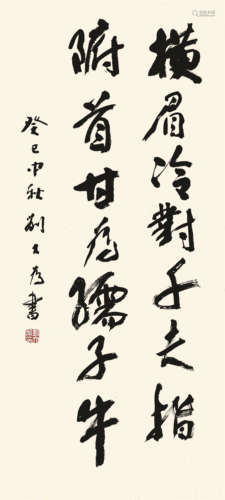 横眉冷對千夫指
俯首甘為孺子牛
癸巳中秋劉大為書